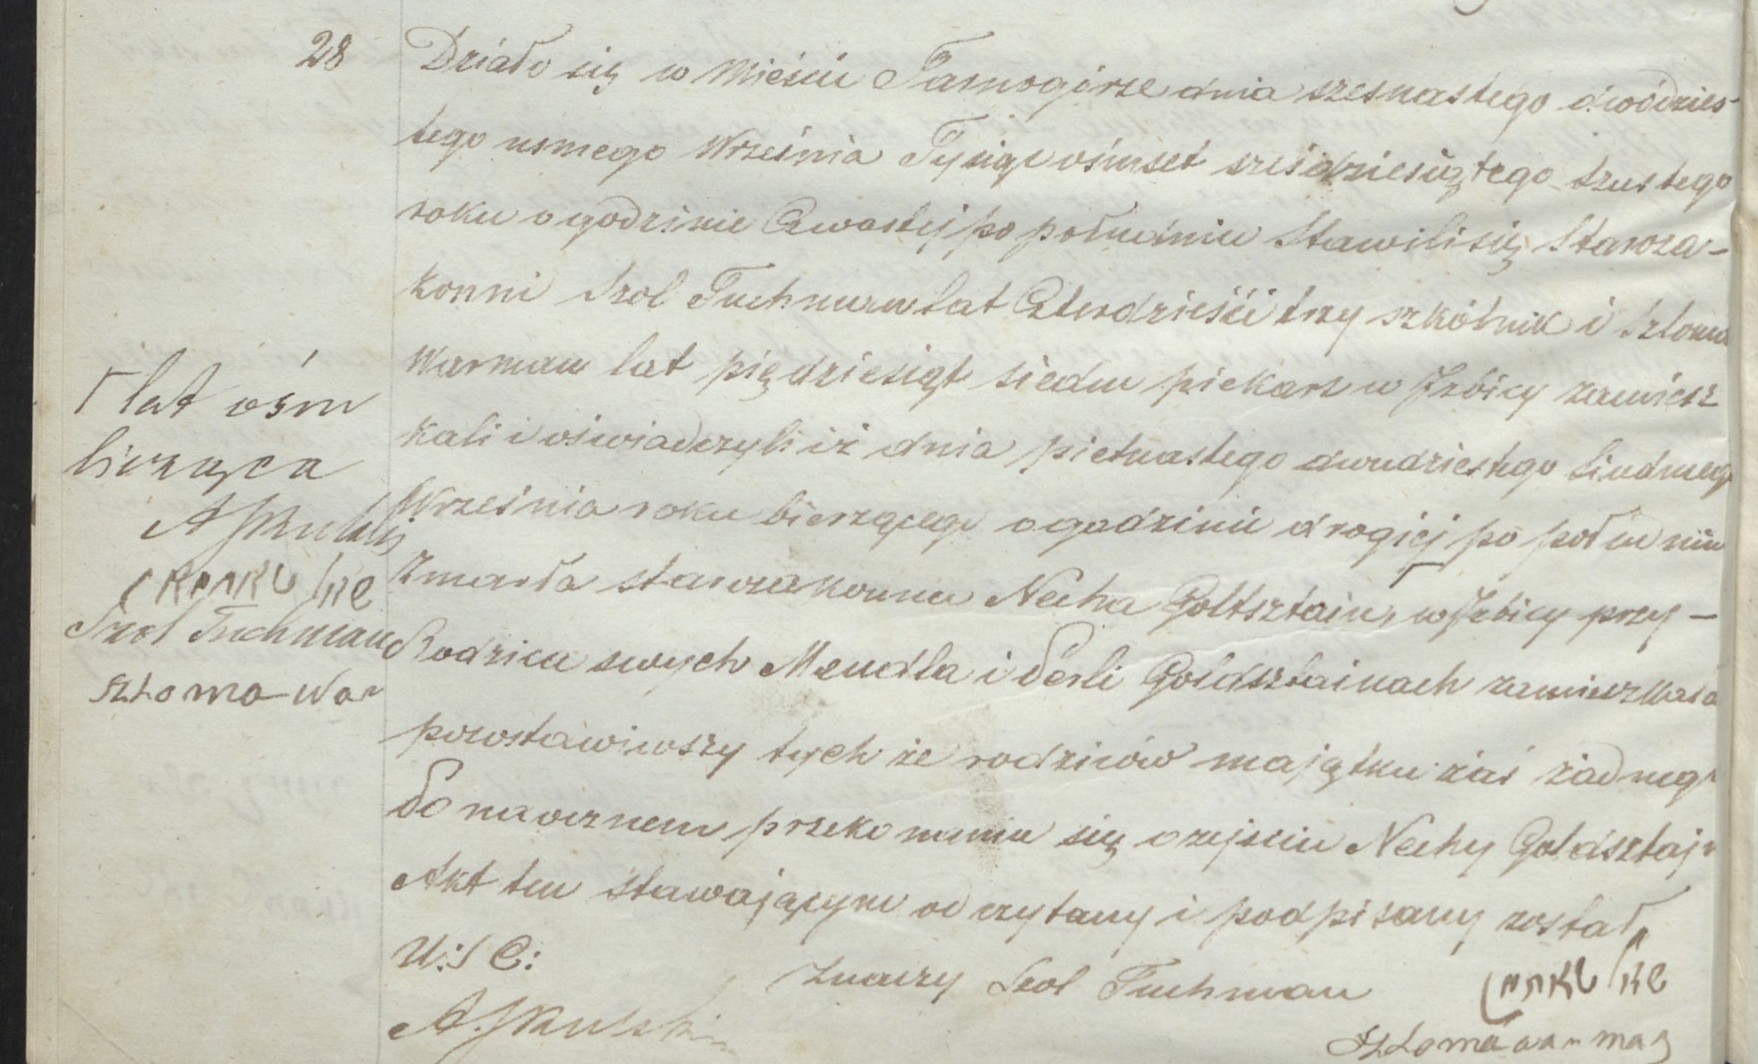 28
Działo się w Mieście Tarnogórze dnia szesnastego dwódzies-
tego usmego Września Tysiąc ośmset sześdziesiątego szustego
roku o godzinie Czwartej po południu Stawili się Staroza-
konni Szol Tuchman lat Czterdzieści trzy szkólnik i Szloma
Warman lat piędziesiąt siedm piekarz w Izbicy zamiesz
kali i oświadczyli iż dnia pietnastego dwudziestego siudmego
Września roku bierzącego o godzinie drogiej po południu
Zmarła starozakonna Necha Goltsztain, w Izbicy przy –
Rodzicu swych Mendla i Perli Goldsztainach zamieszkała
pozostawiwszy tych że rodziców majątku zaś żadnego
Po naocznem przekonaniu się o zejściu Nechy Goldsztajn
Akt ten stawającym odczytany i podpisany został
U:S C:
A. Skulski
Znaczy Szol Tuchman
שאל טוכמאן
Szloma warman
Γ lat ośm
licząca
A Skulski
שאל טוכמאן
Szol Tuchman
Szloma War